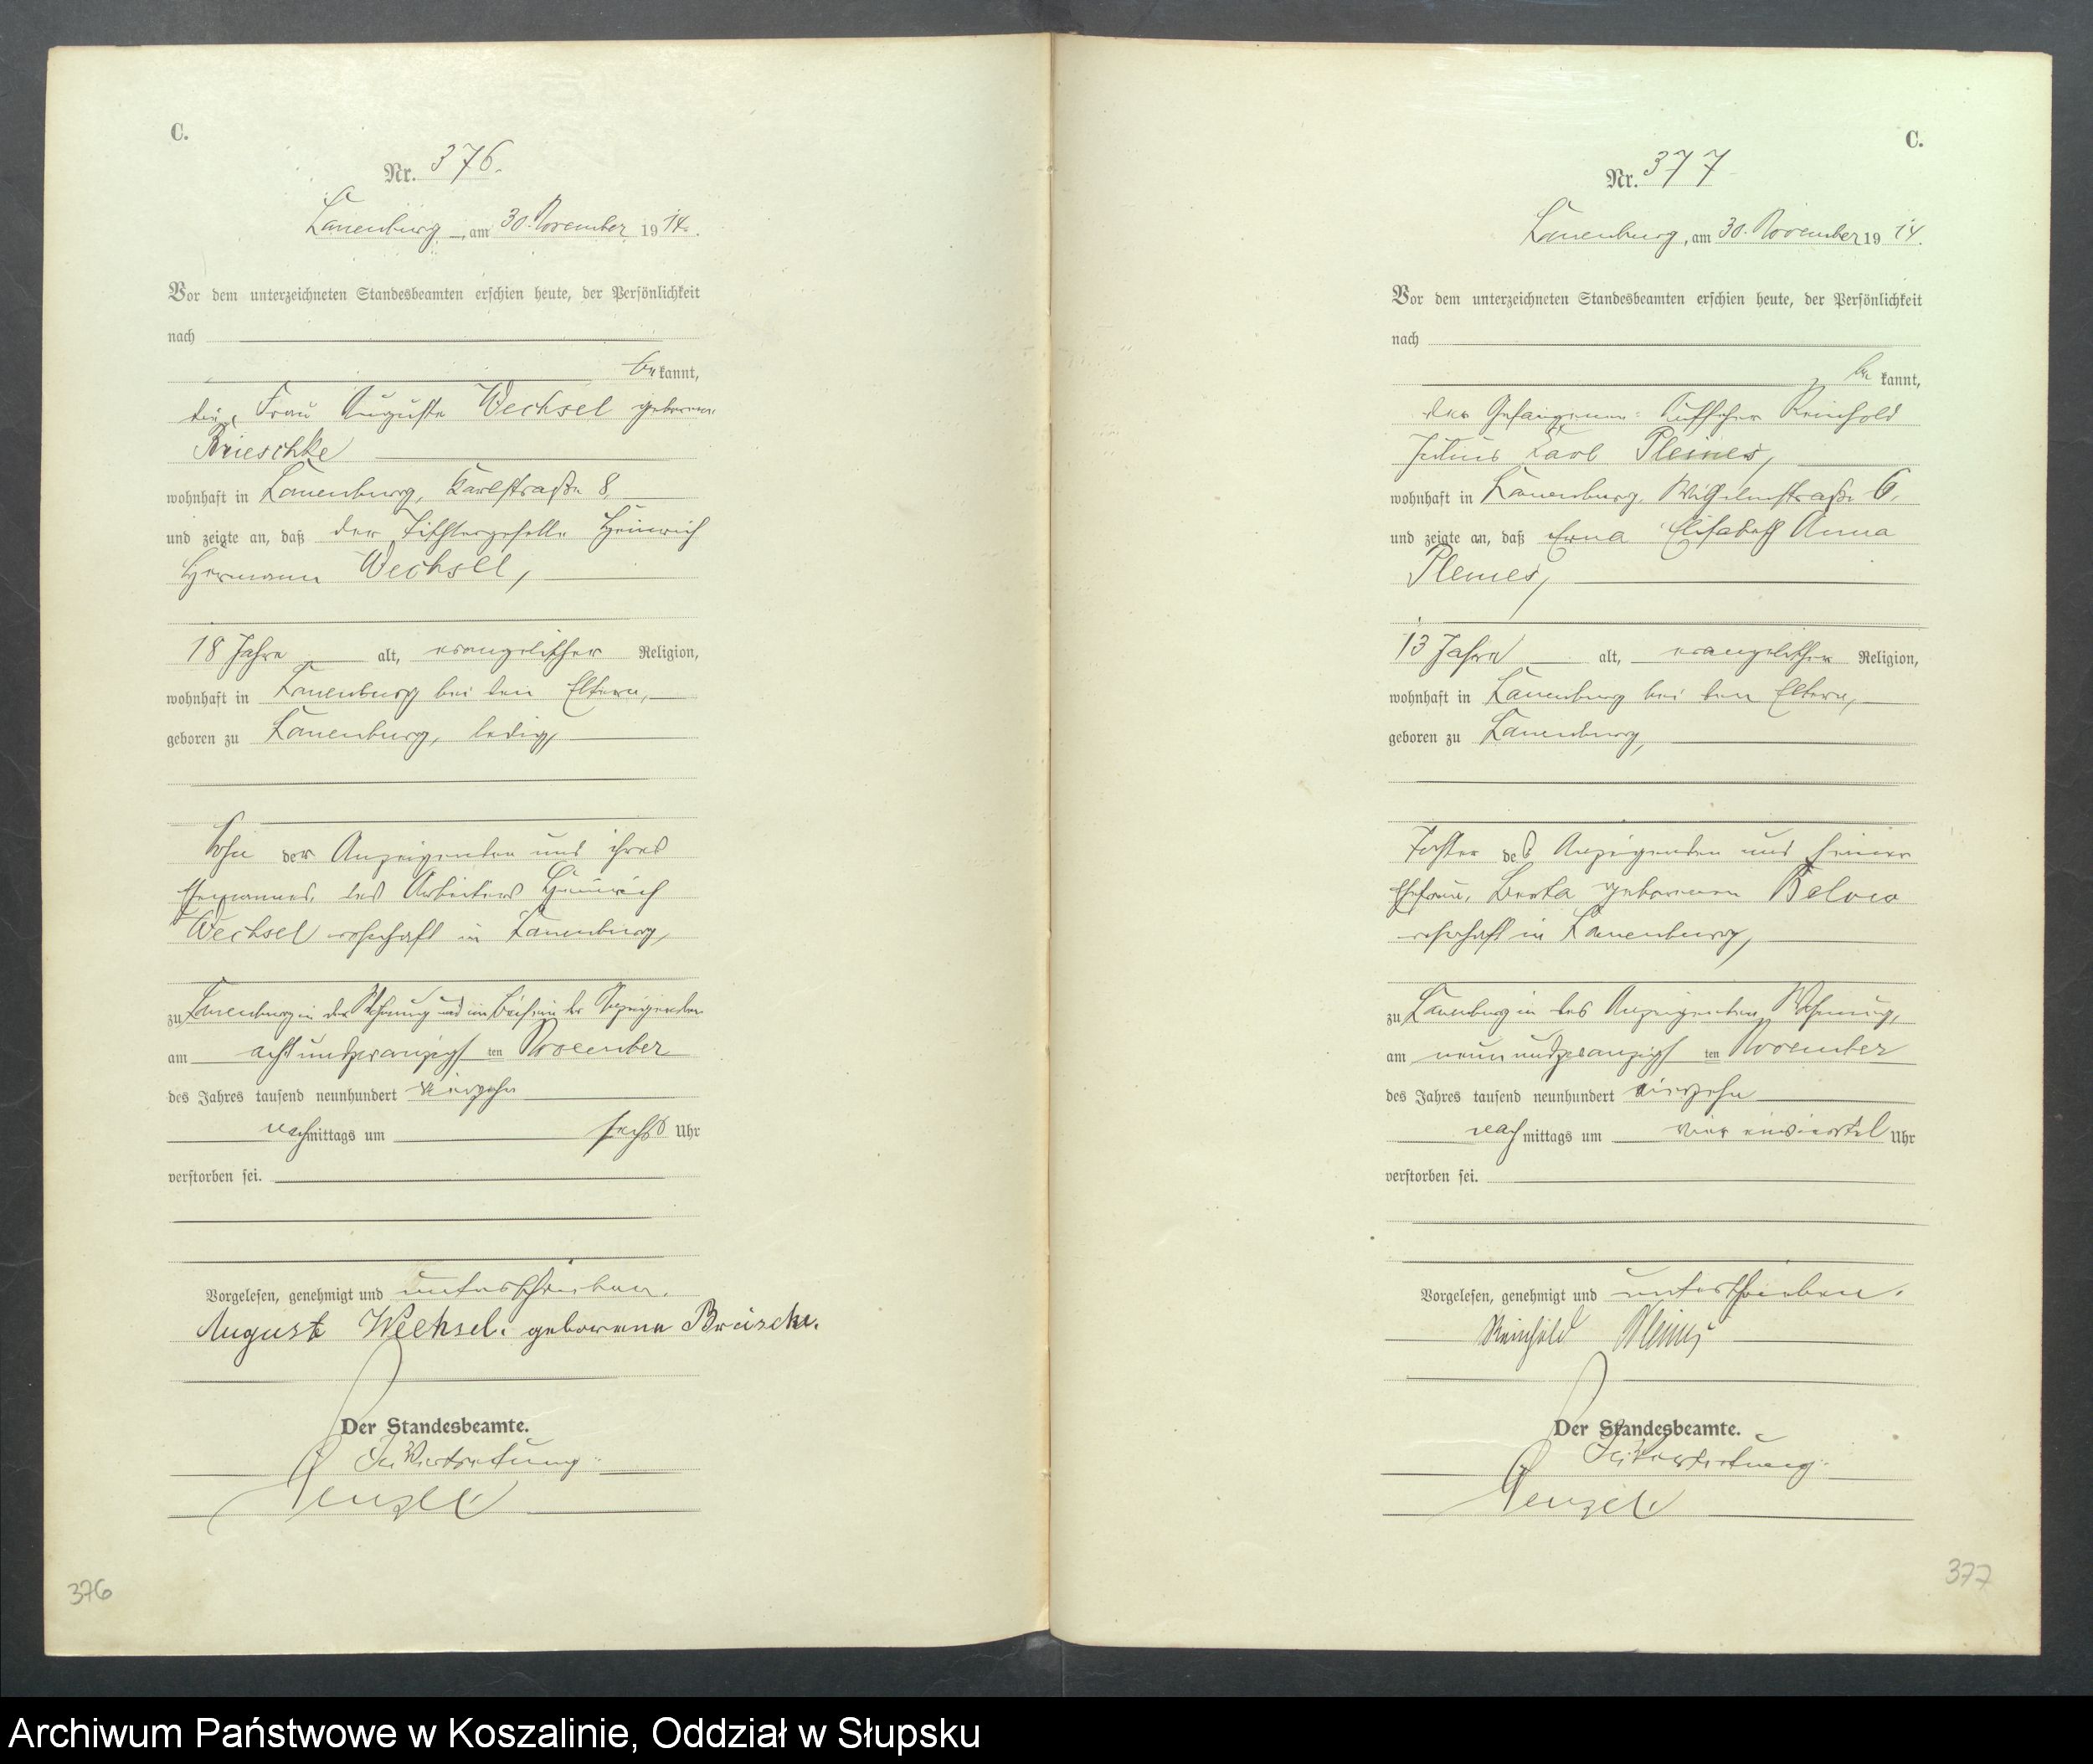 C.
Nr. 376.
Lauenburg, am 30. November 1914.
Vor dem unterzeichneten Standesbeamten erschien heute, der Persönlichkeit
nach
bekannt,
die Frau Auguste Wechsel geborene
Brieschke
wohnhaft in Lauenburg, Karlstraße 8,
und zeigte an, daß der Tischlergeselle Heinrich
Hermann Wechsel,
18 Jahre alt, evangelischer Religion,
wohnhaft in Lauenburg bei den Eltern,
geboren zu Lauenburg, ledig,
Sohn der Anzeigenden und ihres
Ehemannes, des Arbeiters Heinrich
Wechsel wohnhaft in Lauenburg,
zu Lauenburg in der Wohnung und im Beisein der Anzeigenden
am achtundzwanzigsten November
des Jahres tausend neunhundert vierzehn
nachmittags um sechs Uhr
verstorben sei.
Vorgelesen, genehmigt und unterschrieben.
August Wechsel. geborene
Der Standesbeamte.
In Vertretung.
376
C.
Nr. 377
Lauenburg, am 30. November 1914.
Vor dem unterzeichneten Standesbeamten erschien heute, der Persönlichkeit
nach
bekannt,
der Gefangenen-Aufseher Reinhold
Julius Karl Pleines,
wohnhaft in Lauenburg, Wilhelmstraße 6,
und zeigte an, daß Erna Elisabeth Anna
Pleines,
13 Jahre alt, evangelischer Religion,
wohnhaft in Lauenburg bei den Eltern,
geboren zu Lauenburg,
Tochter des Anzeigenden und seiner
Ehefrau, Berta geborenen
wohnhaft in Lauenburg,
zu Lauenburg in des Anzeigenden Wohnung,
am neunundzwanzigsten November
des Jahres tausend neunhundert vierzehn
nachmittags um vier einviertel Uhr
verstorben sei.
Vorgelesen, genehmigt und unterschrieben.
Reinhold Pleines
Der Standesbeamte.
In Vertretung.
377
Archiwum Państwowe w Koszalinie, Oddział w Słupsku